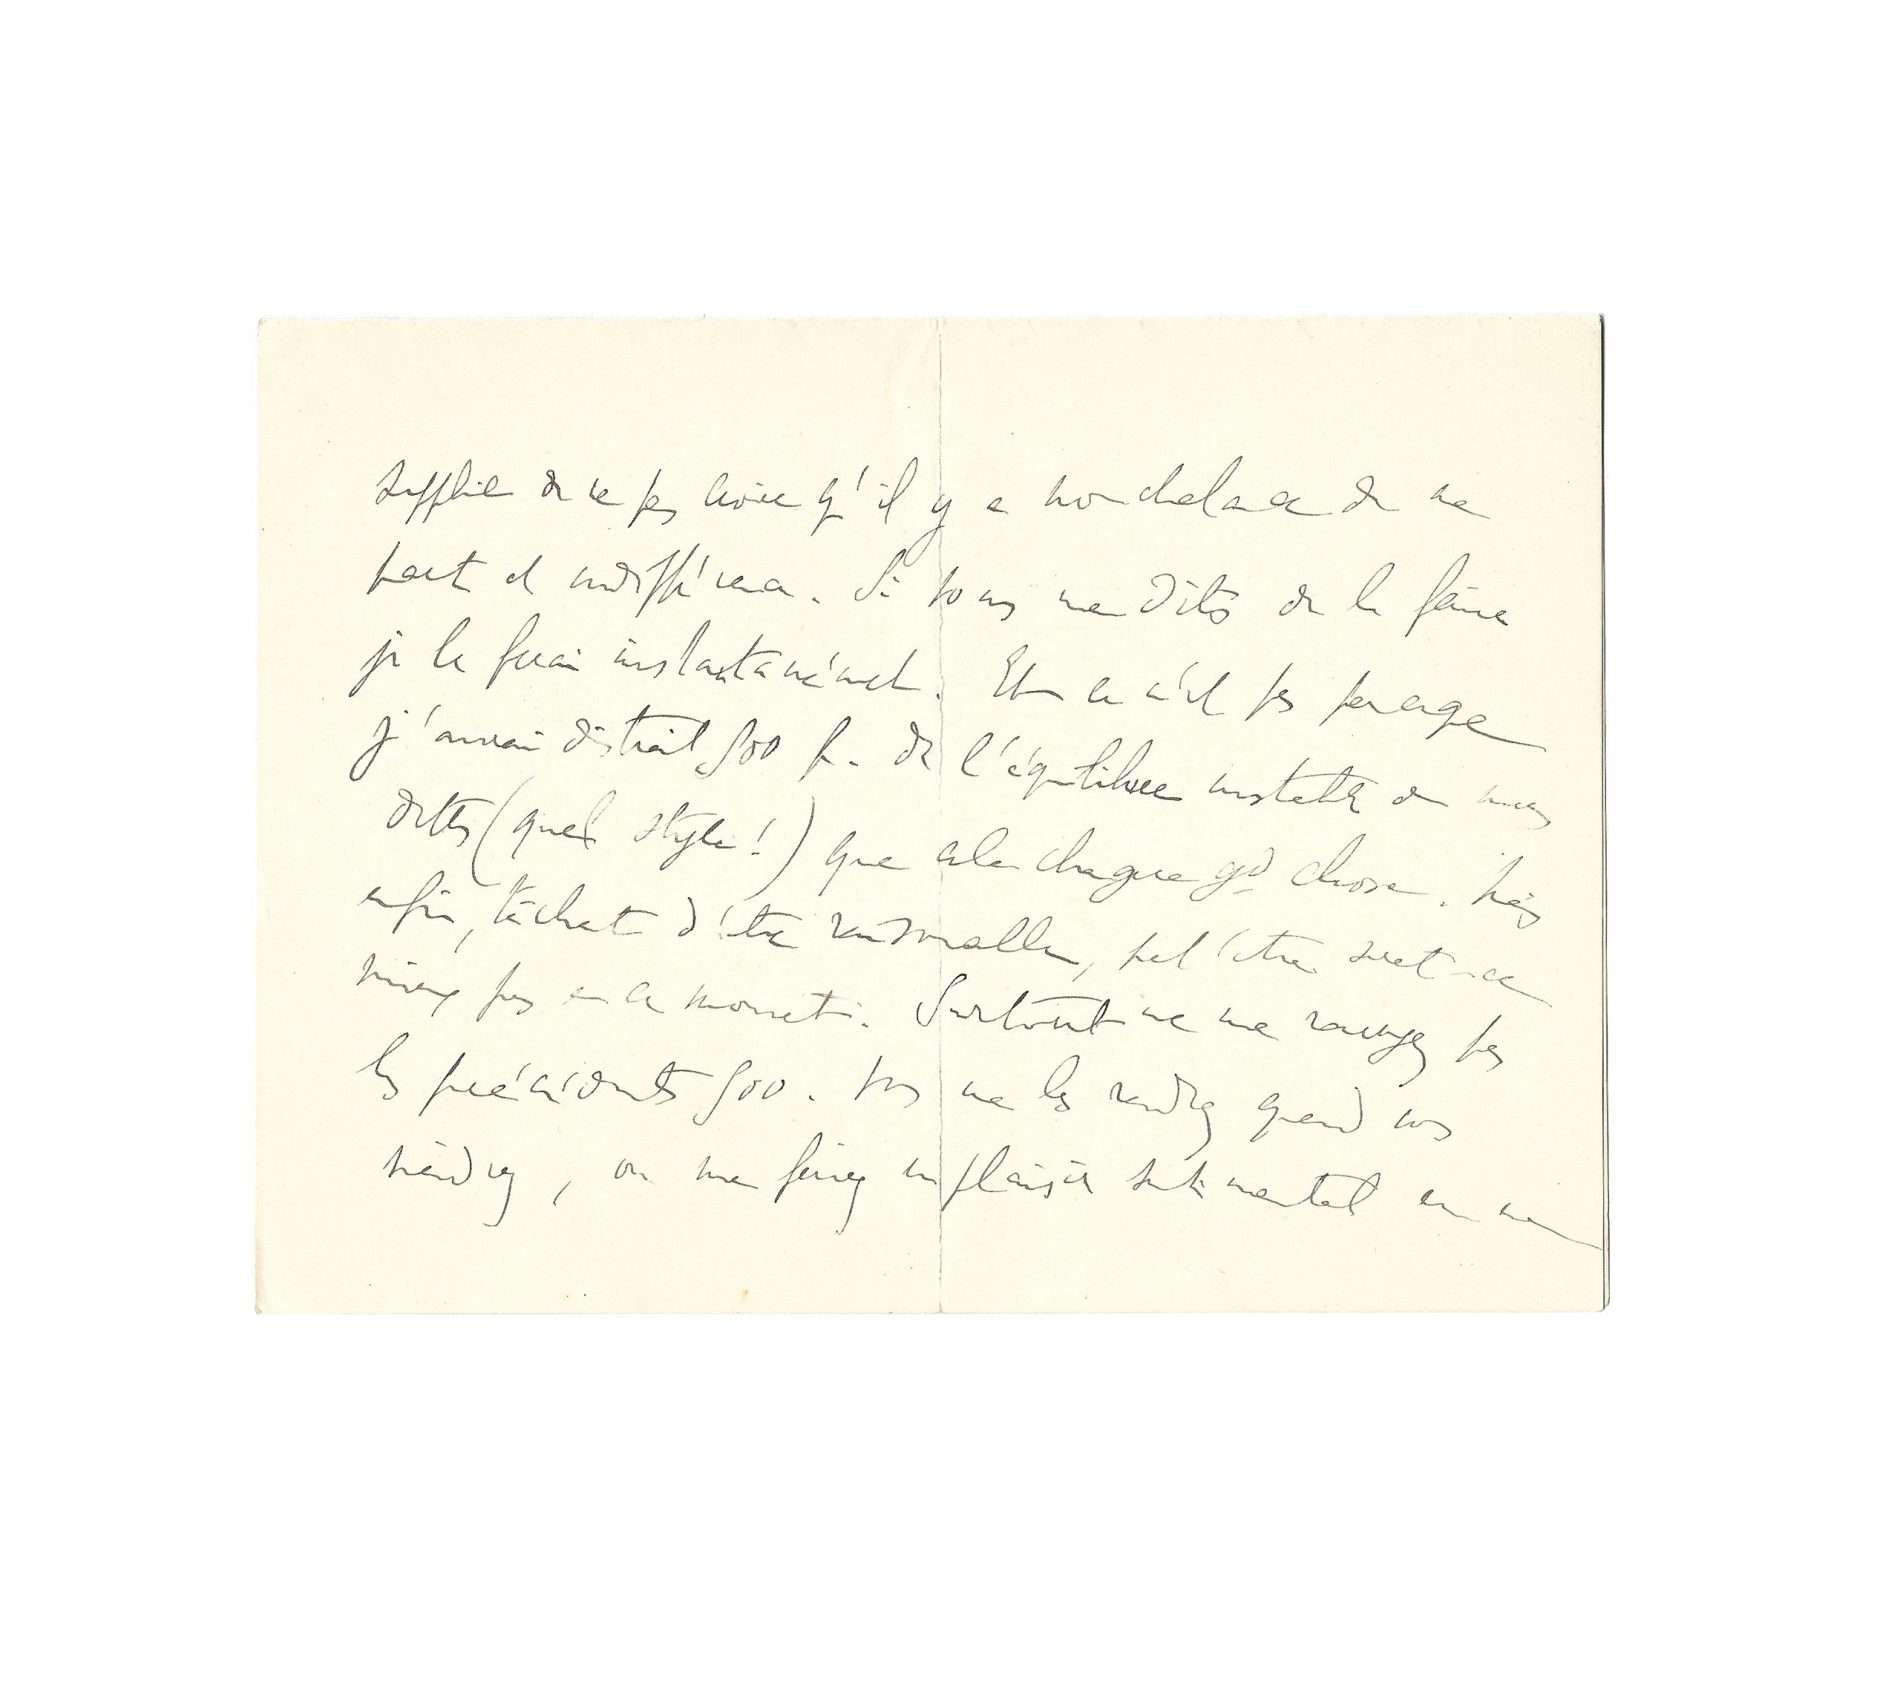 supplie de ne pas croire qu'il y a nonchalance de ma
part et indifférence. Si vous me dites de le faire
je le ferai instantanément. Et ce n'est pas parce que
j'aurai distrait 500 f. de l'équilibre instable de mes
dettes (quel style!) que cela change gd chose. Mais
enfin, tâchant d'être raisonnable, peut'être serait-ce
mieux pas en ce moment. Surtout ne me renvoyez pas
les précédents 500. Vous me les rendrez quand vous
viendrez, ou me ferez un plaisir sentimental en ne